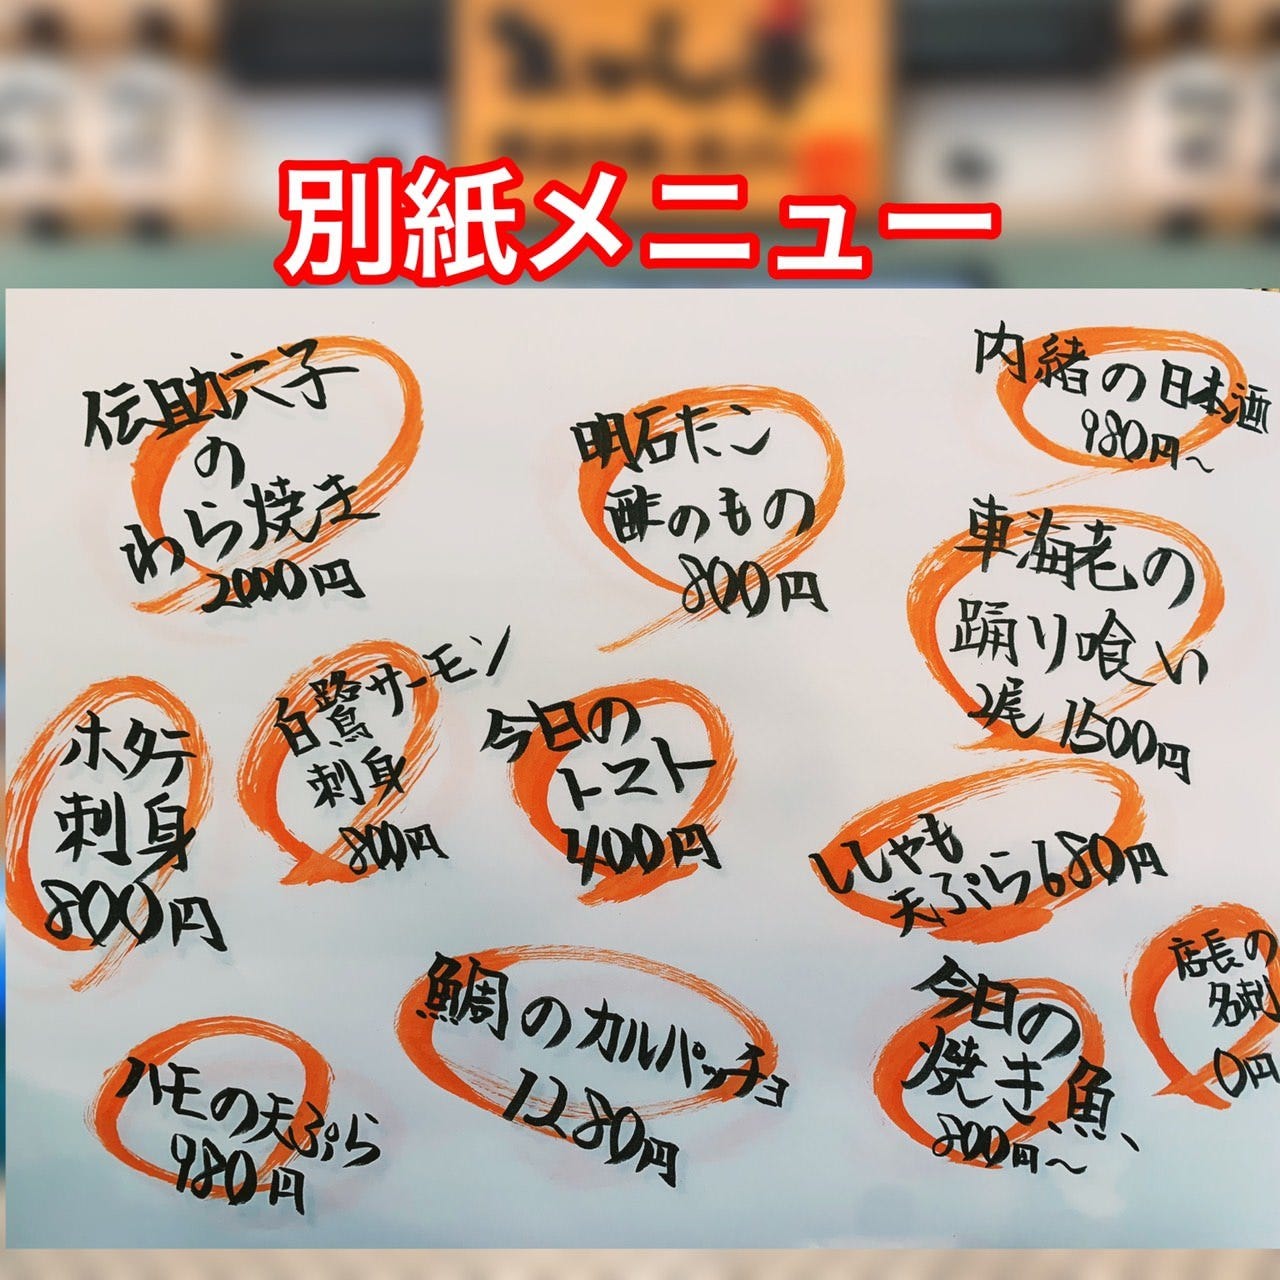 別紙メニュー
伝助穴子
の
わら焼き
2000円
明石たこ
酢のもの
800円
内緒の日本酒
980円～
車海老の
踊り喰い
2尾 1500円
ホタテ
刺身
800円
白鷺サーモン
刺身
800円
今日の
トマト
400円
ししゃも
天ぷら680円
ハモの天ぷら
980円
鯛のカルパッチョ
1280円
今日の
焼き魚
800円～
店長の
名刺
0円